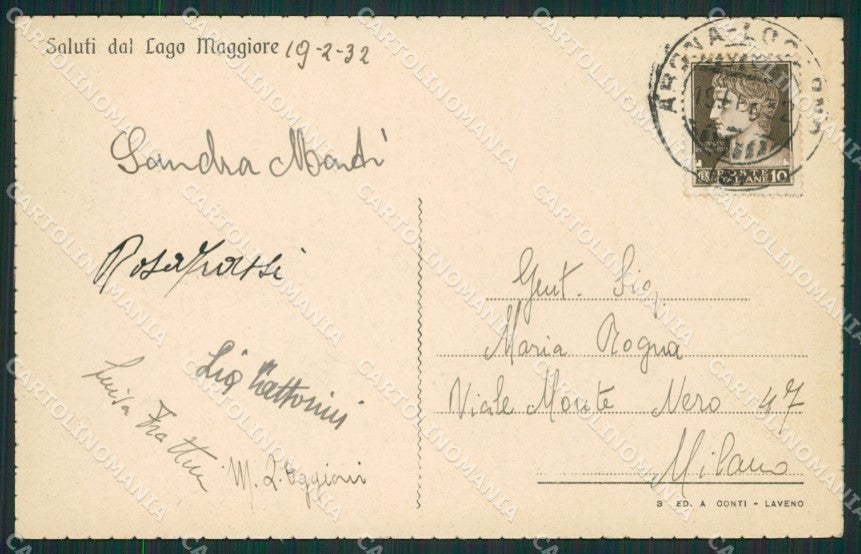 Saluti dal Lago Maggiore 19-2-32
ARONA - LOCARNO
POSTE
ITALIANE 10
Sandra Monti
Rosa
Gent. Sig.
Maria Rogna
Viale Monte Nero 47
Milano
Luisa
M. L. Oggioni
3 ED. A CONTI - LAVENO
CARTOLINOMANIA